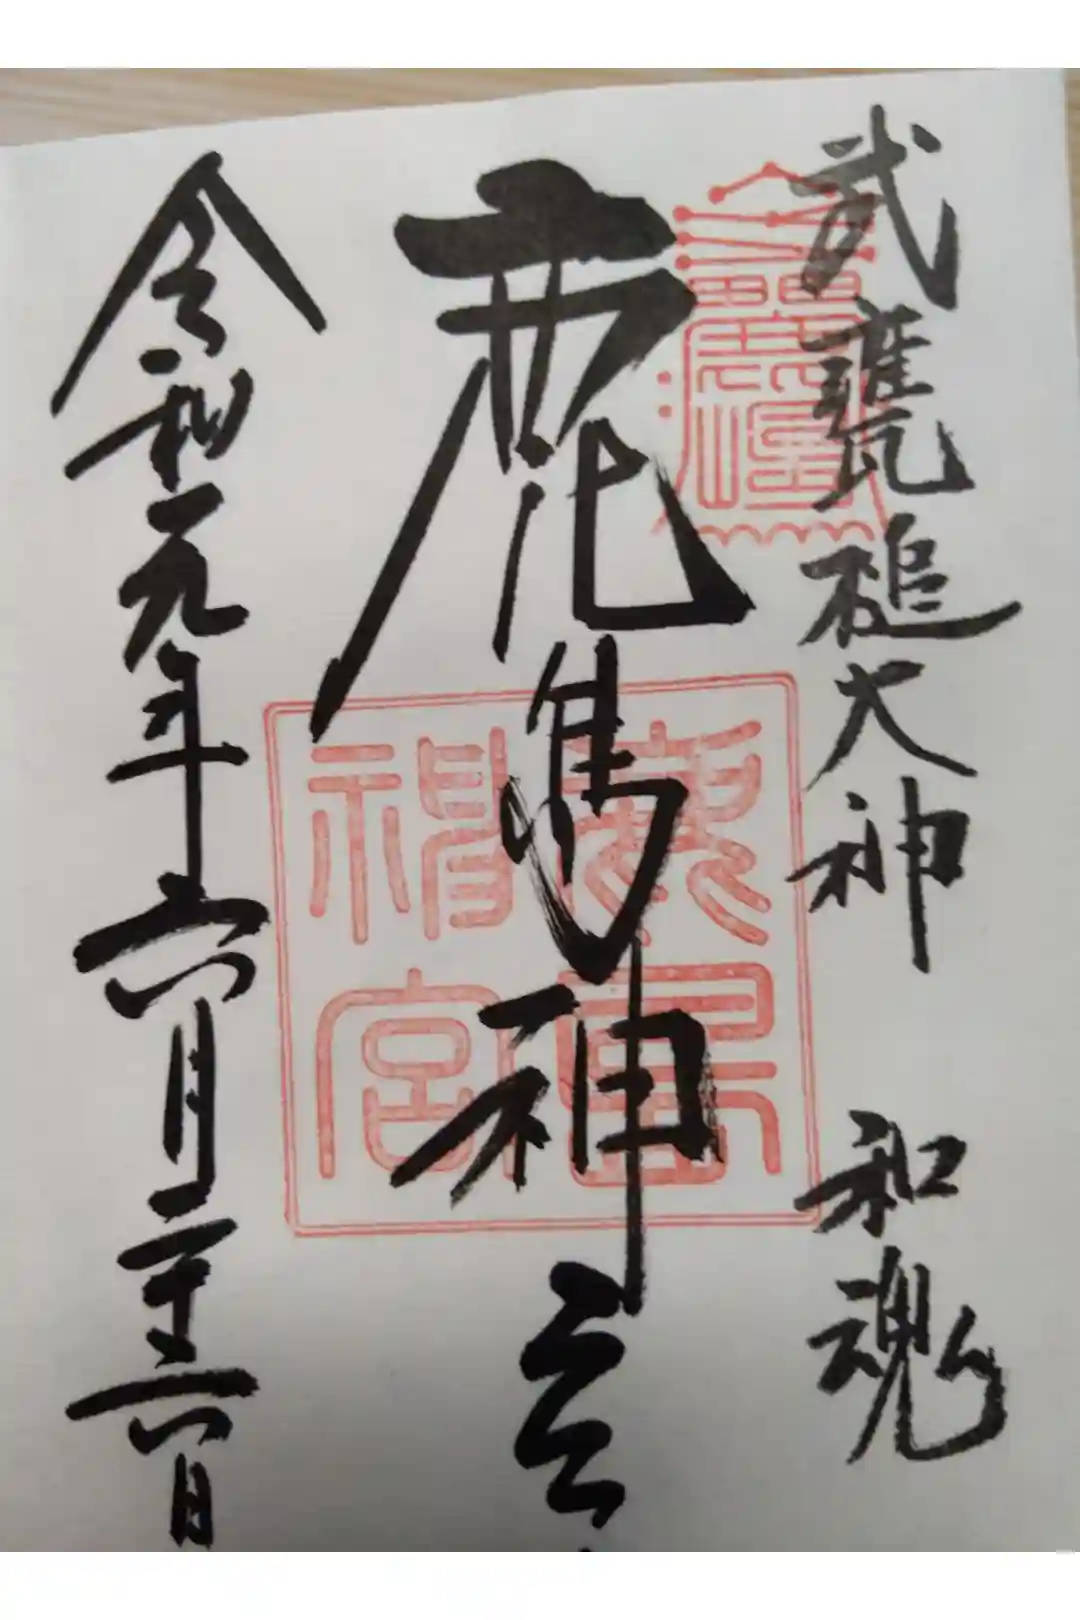 武甕槌大神 和魂
鹿島神宮
鹿島神宮
令和元年六月二十六日